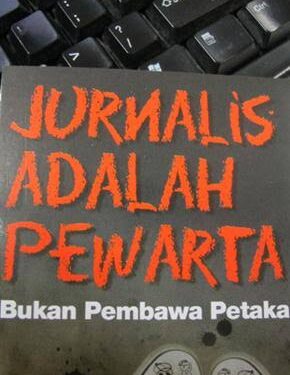 JURNALIS
ADALAH
PEWARTA
Bukan Pembawa Petaka